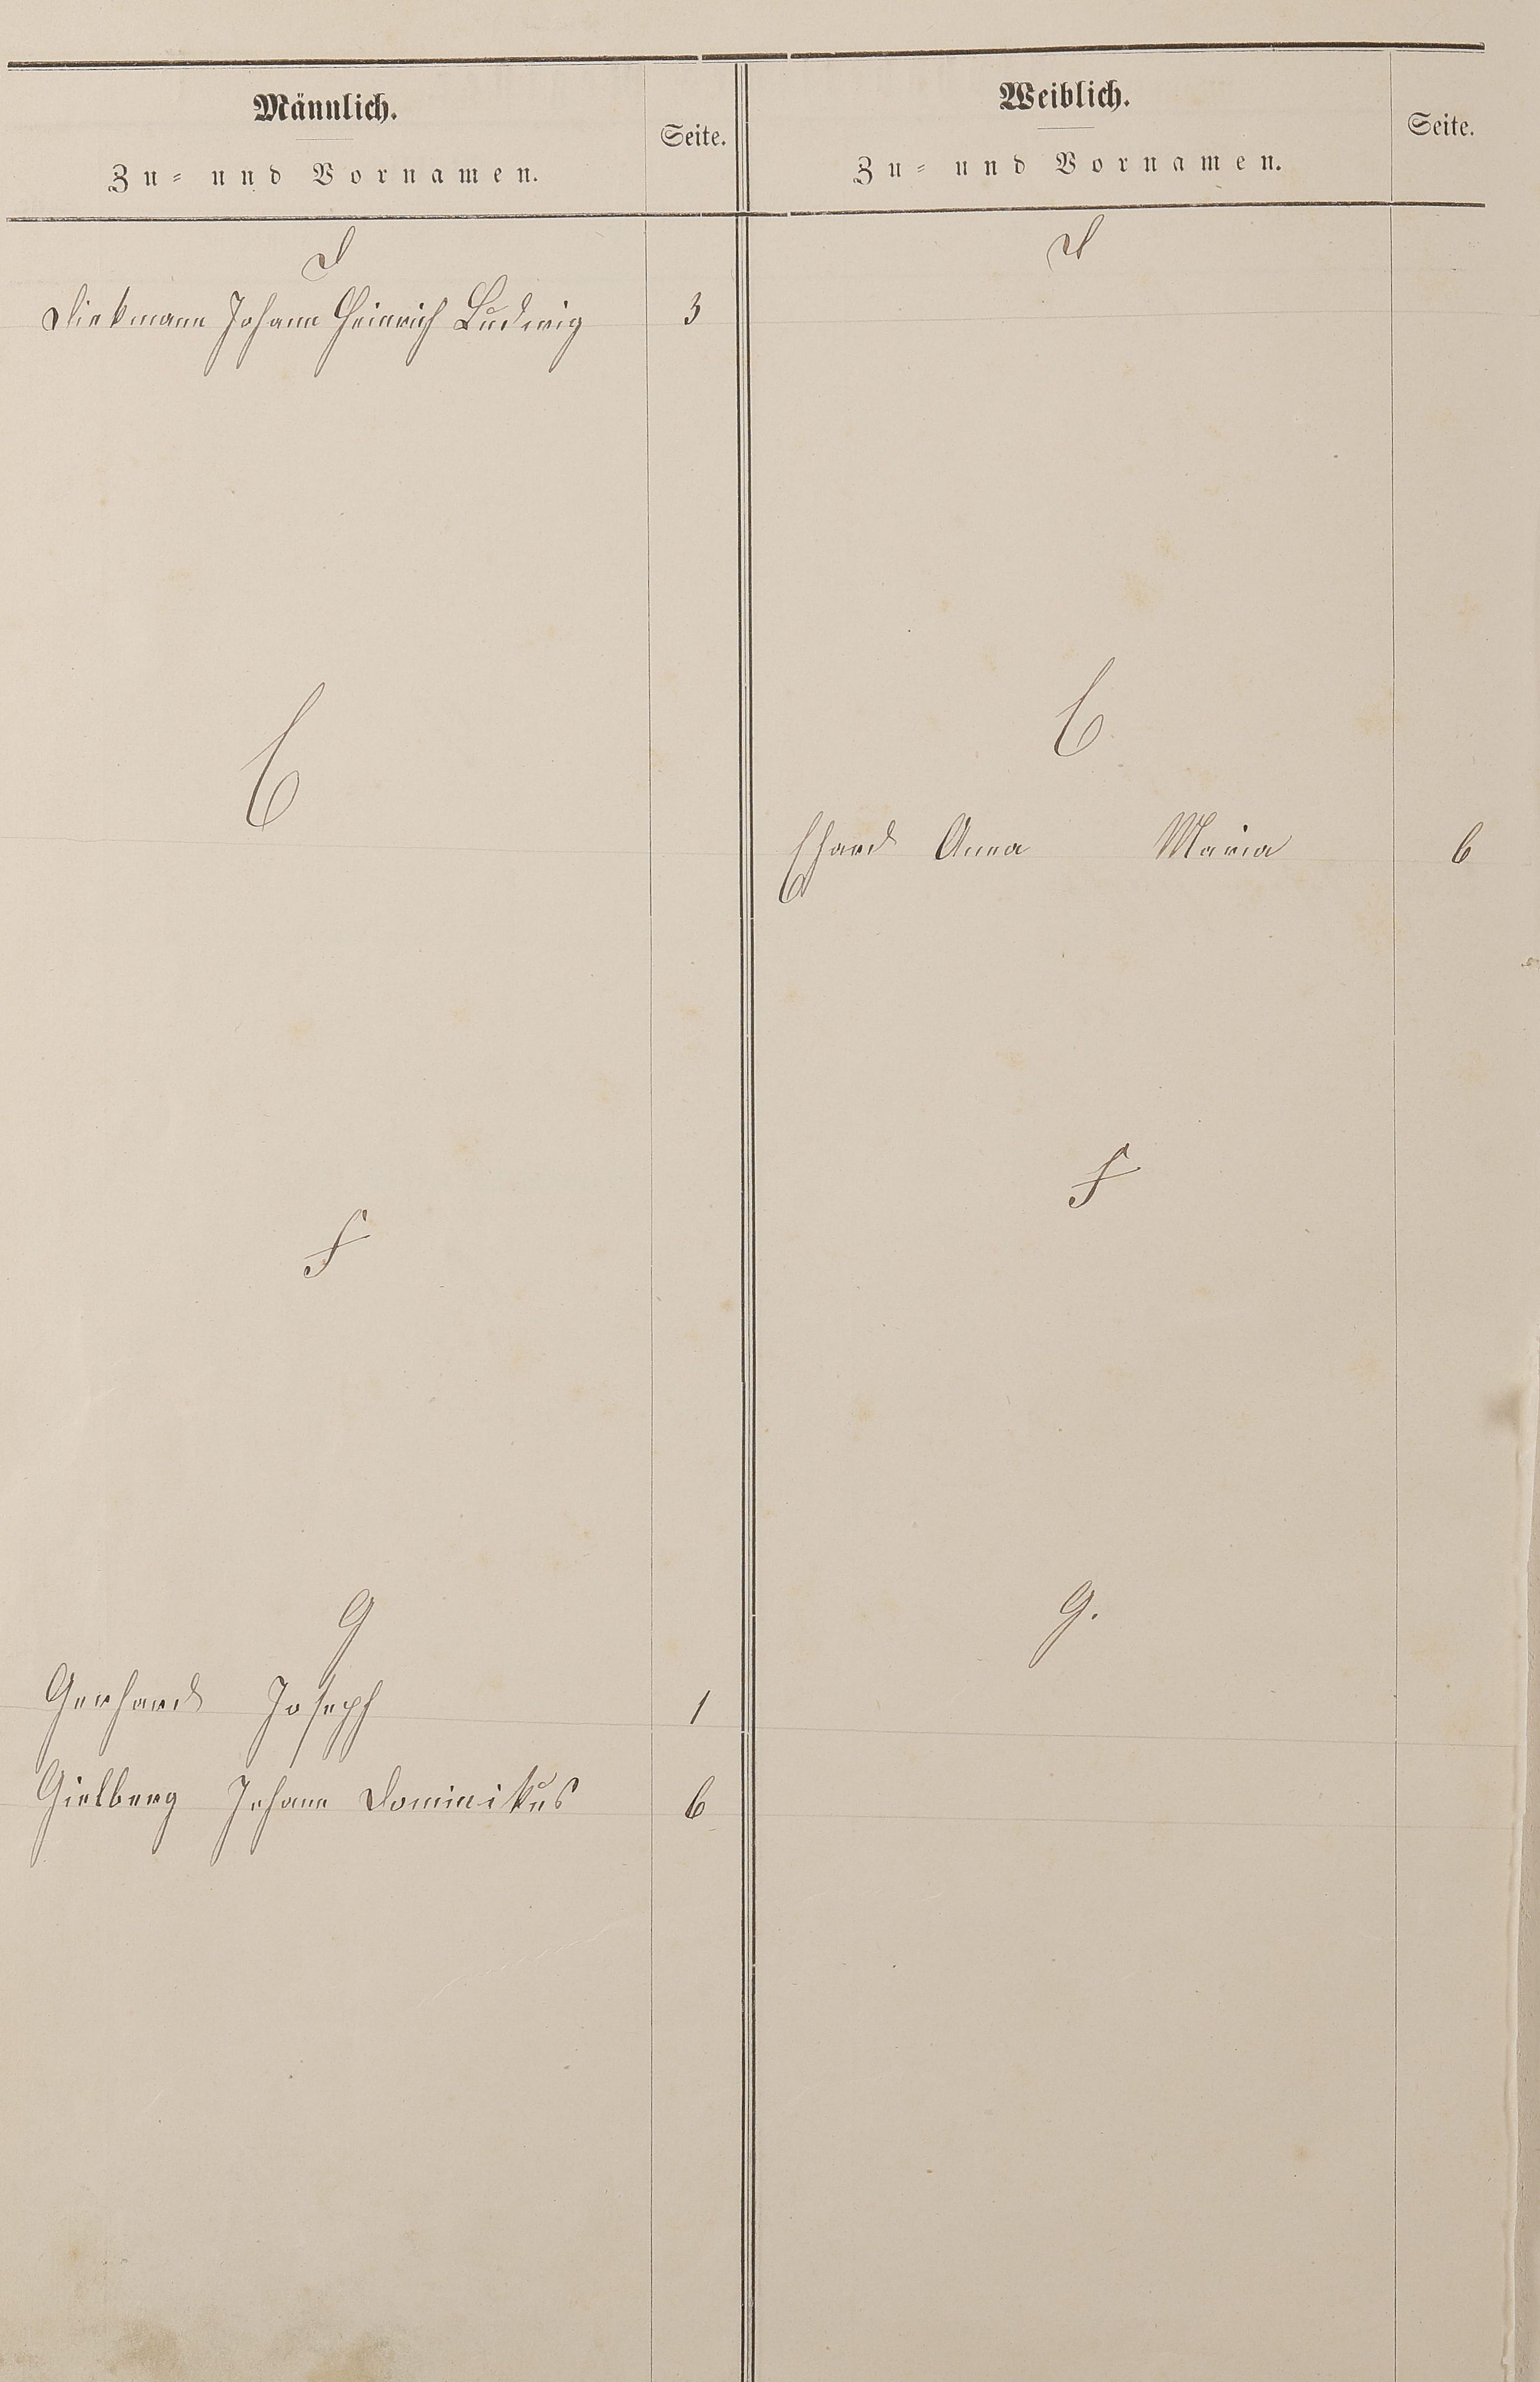 Männlich.
Zu- und Vornamen.
Seite.
D
Diekmann Johann Heinrich Ludwig 3
E
F
G
Gerhard Joseph 1
Gielberg Johann Dominikus 6
Weiblich.
Zu- und Vornamen.
Seite.
D
E
Ehard Anna Maria 6
F
G.